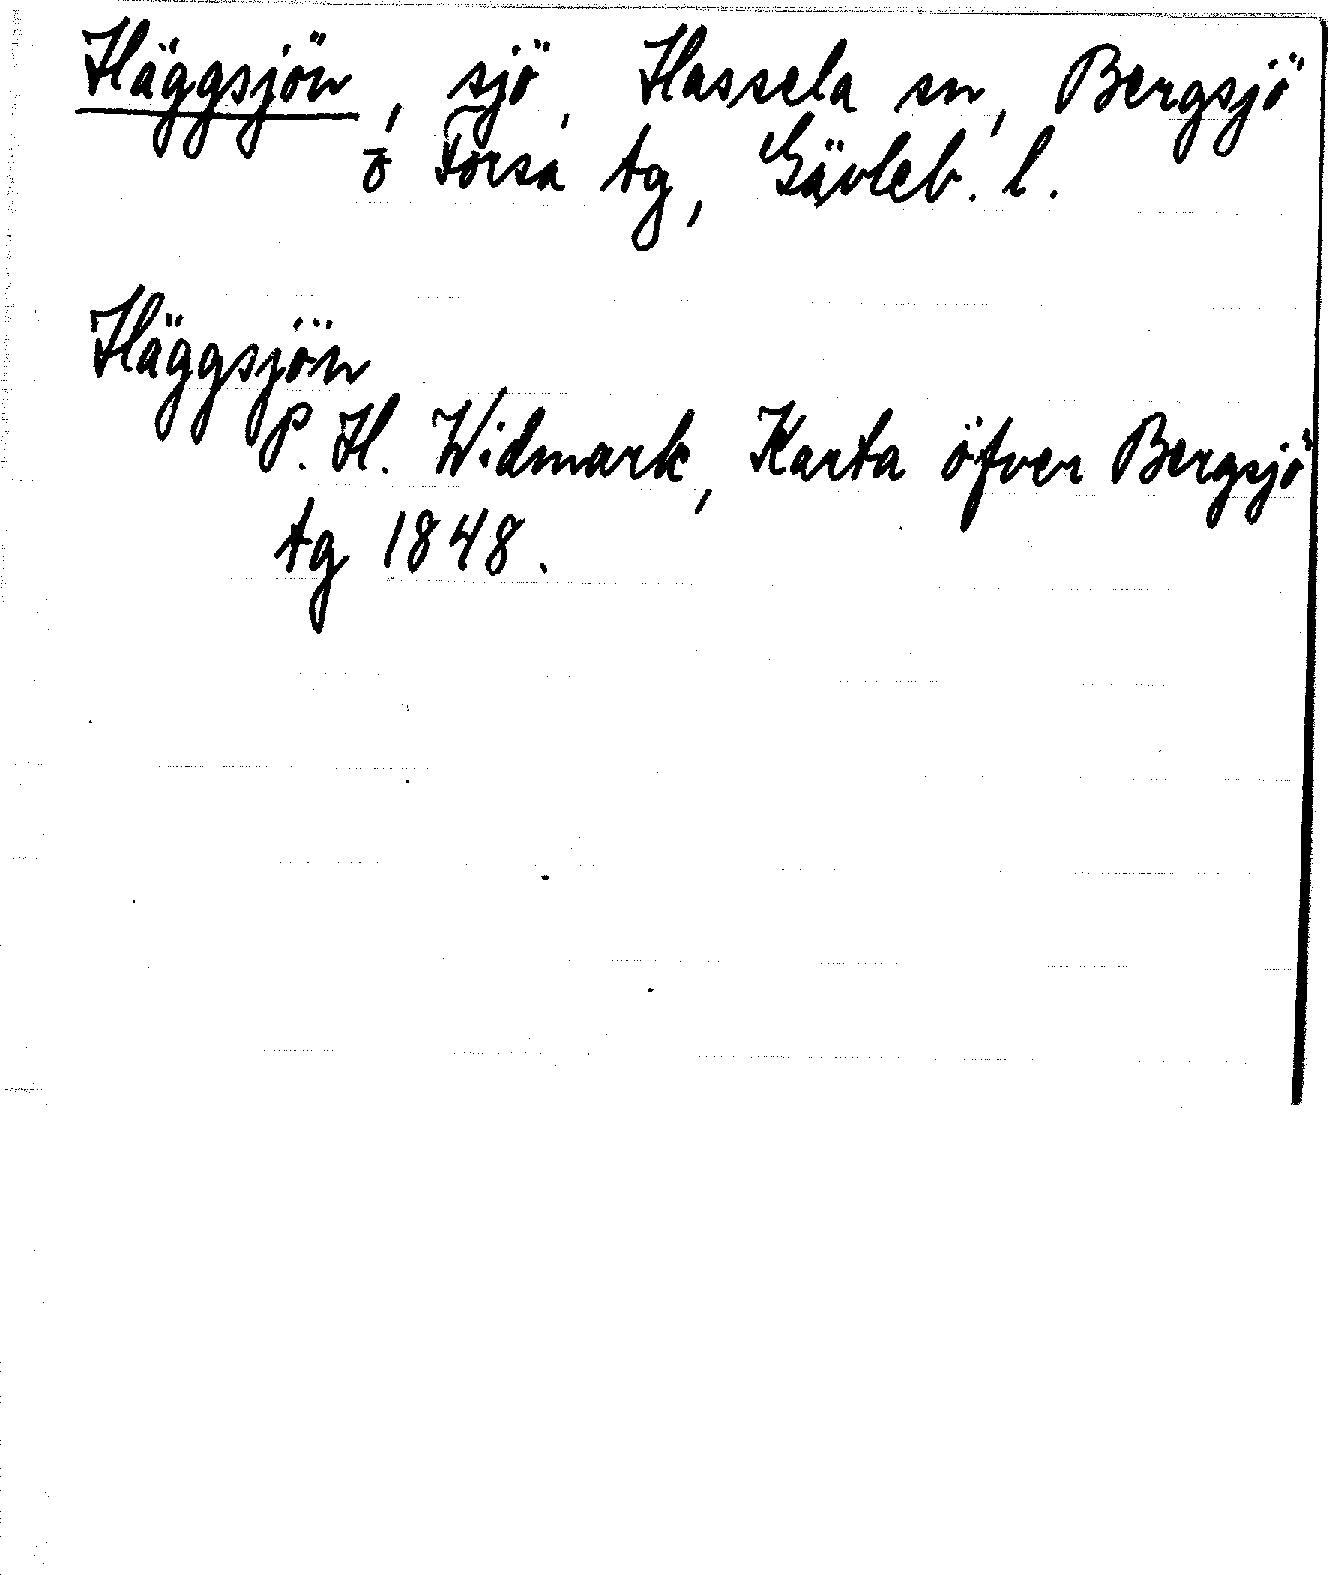 Häggsjön, sjö, Hassela sn, Bergsjö
o Forsa tg, Gävleb. l.
Häggsjön
P. H. Widmark, Karta öfver Bergsjö
tg 1848.